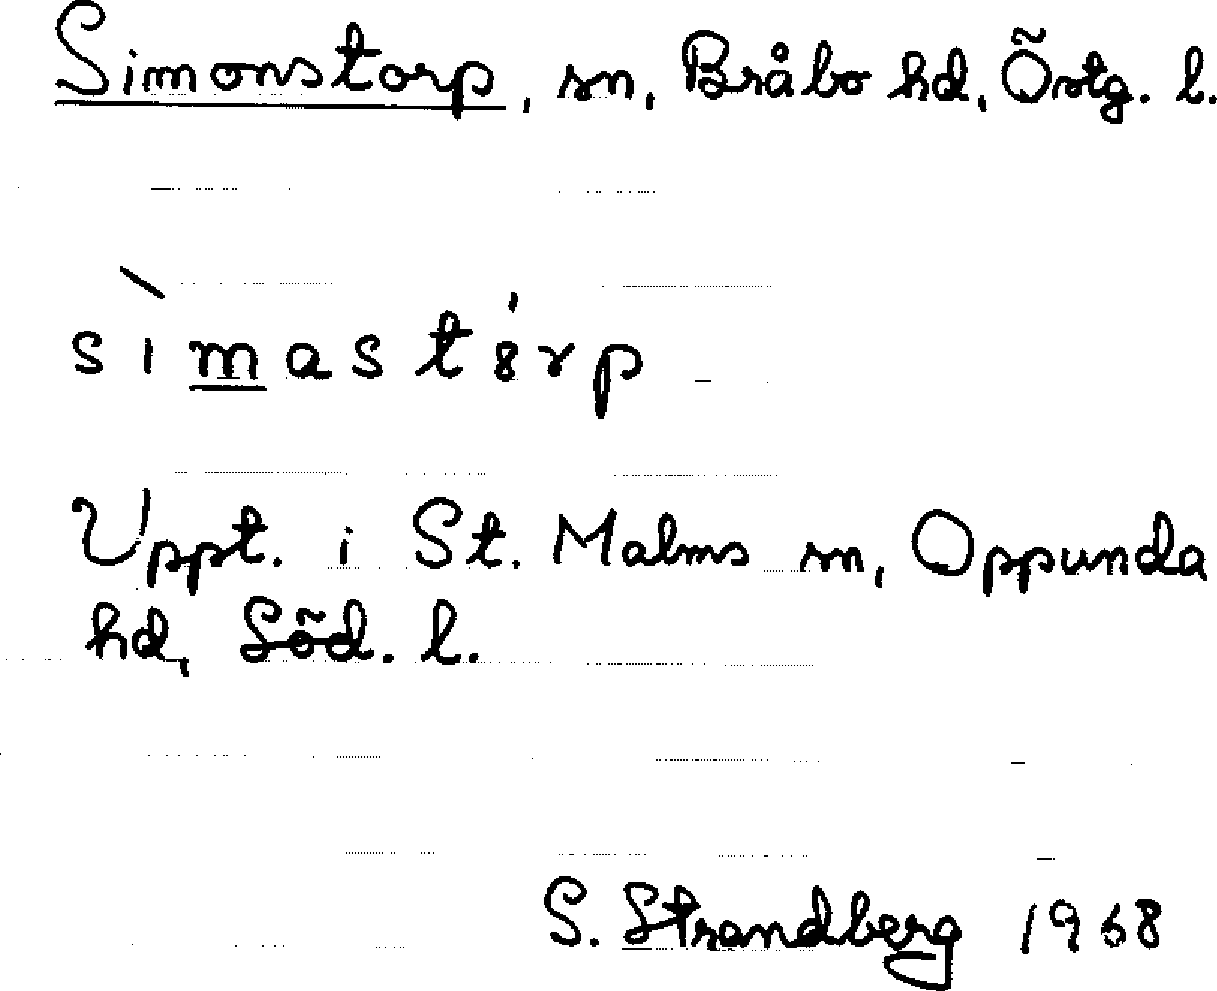 Simonstorp, sn, Bråbo hd, Östg. l.
sìmastȣ́rp
Uppt. i St. Malms sn, Oppunda
hd, Söd. l.
S. Strandberg 1968